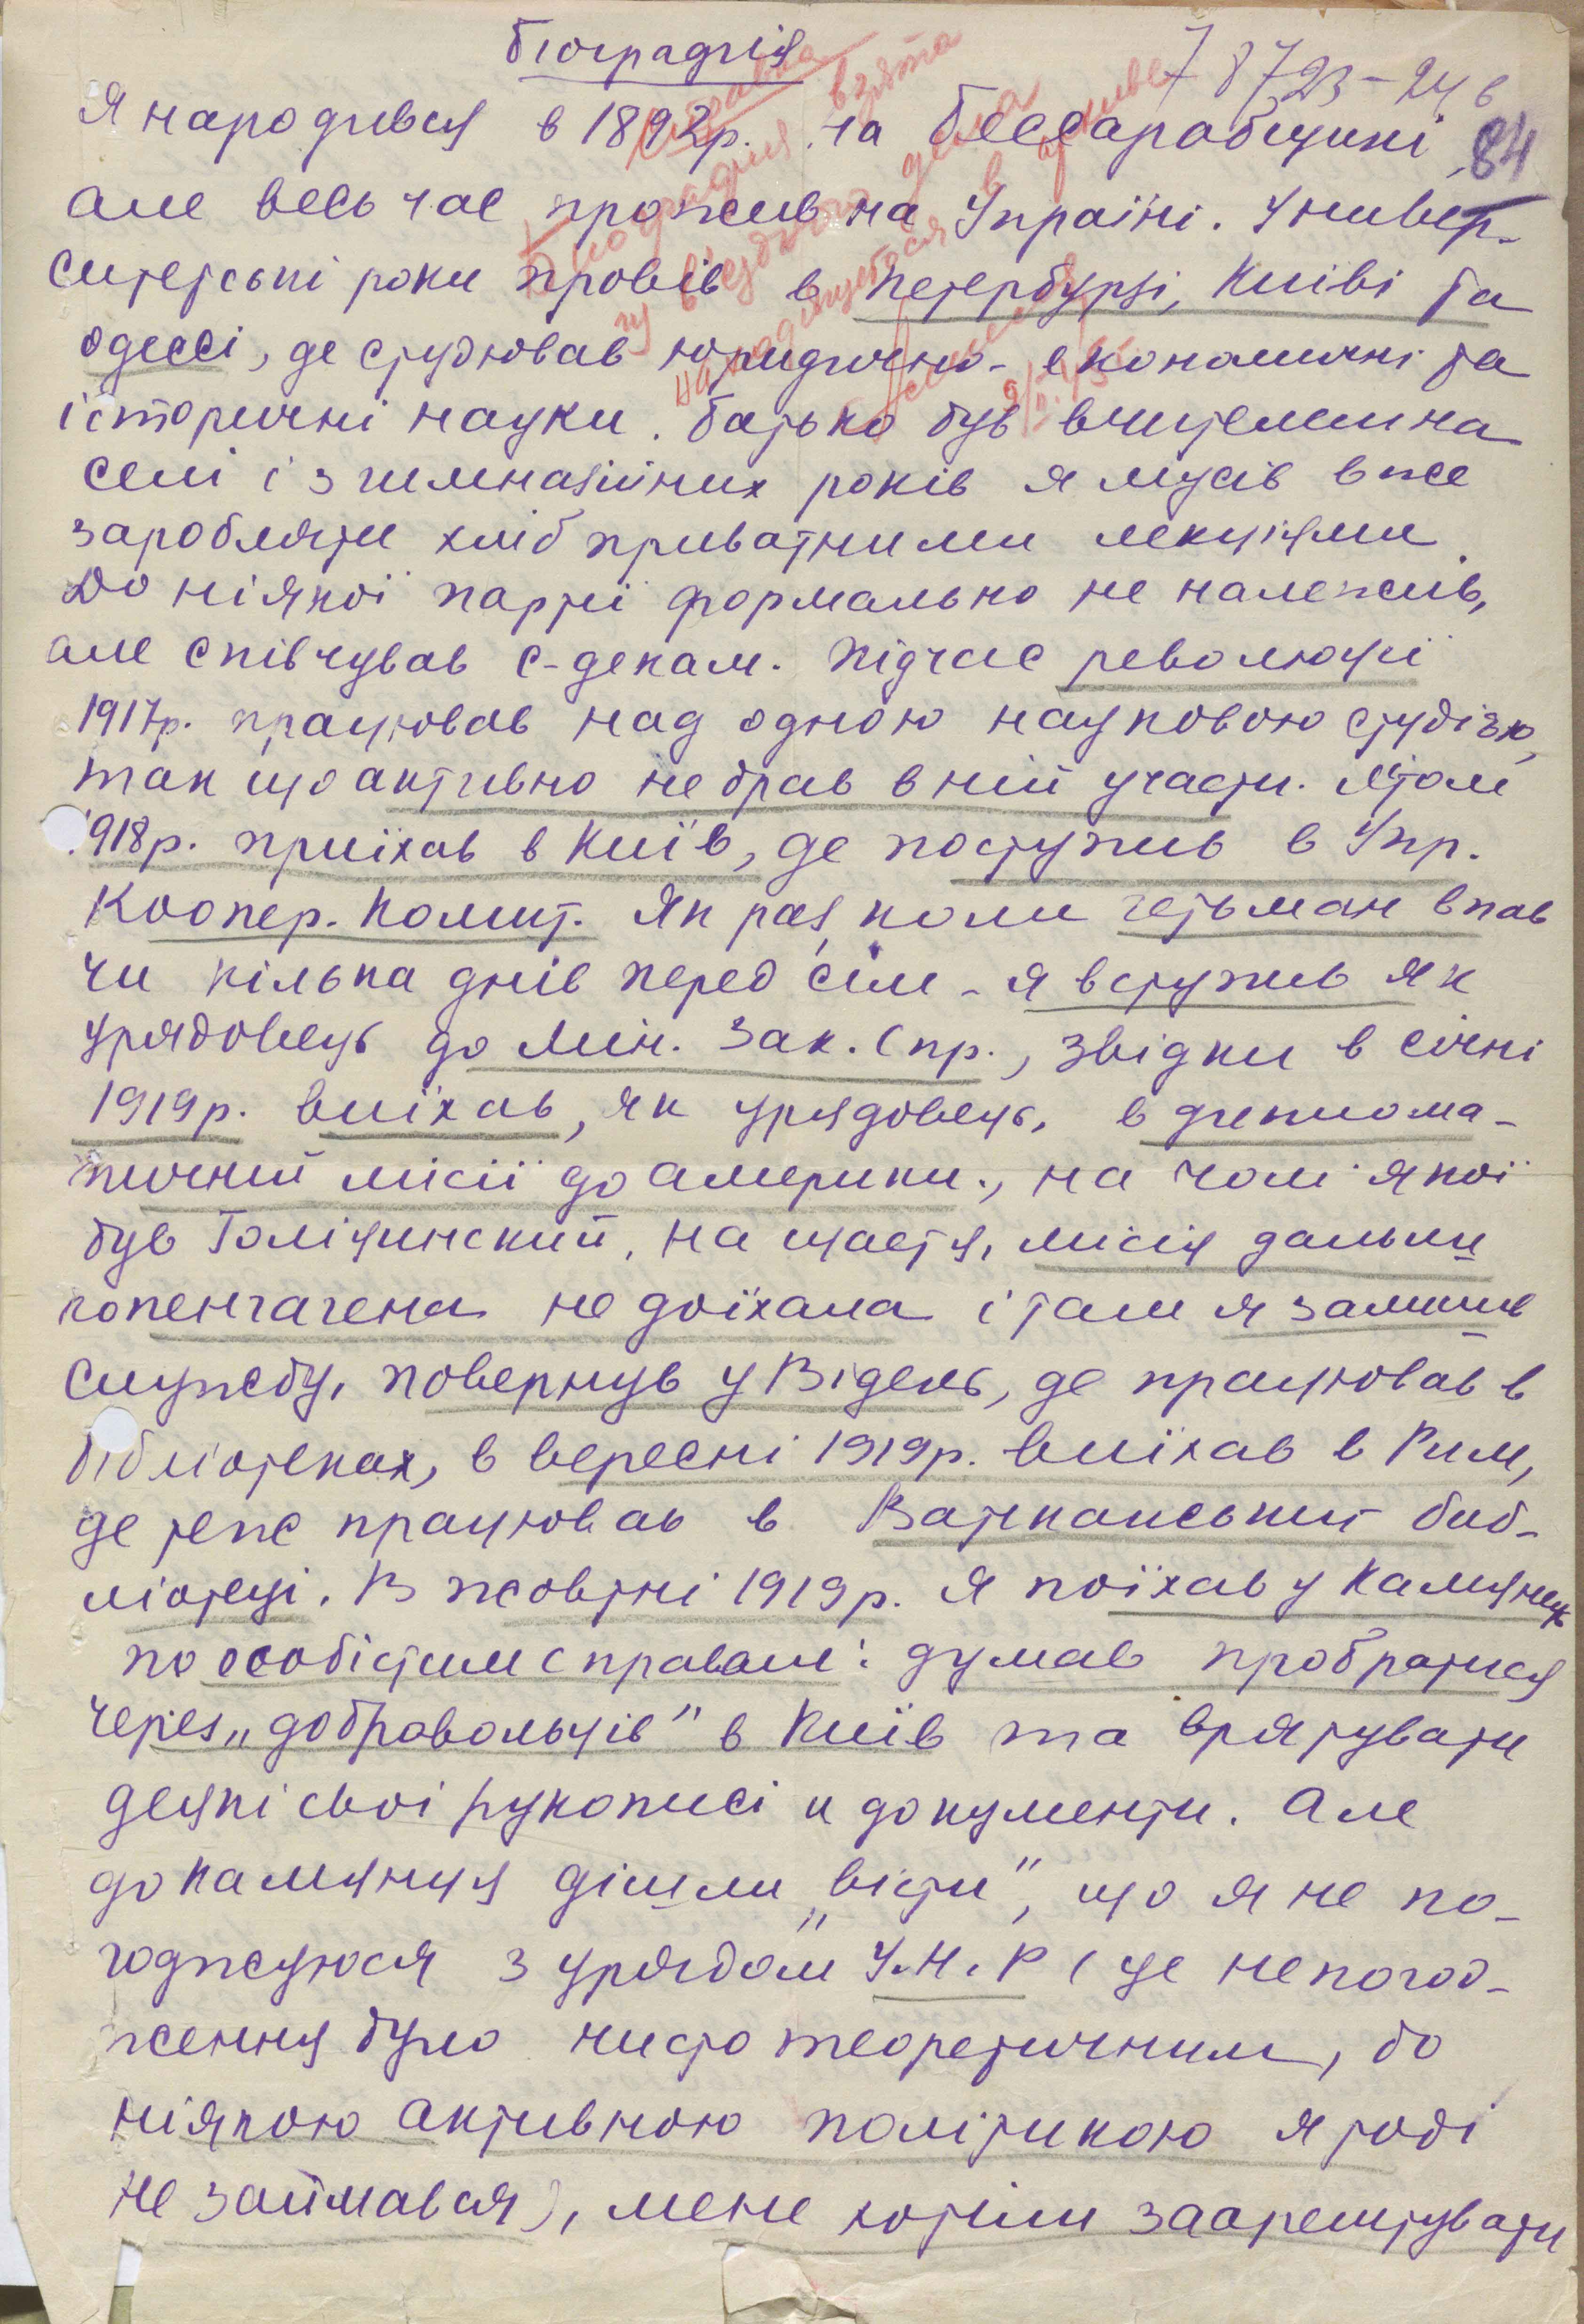 біографія
7 8723-246
84
Я народився в 1892р. на Бессарабщині
але весь час прожив на Україні. Универ-
ситетські роки провів в Петербурзі, Київі та
Одессі, де студіював юридично-економичні та
історичні науки. Батько був вчителем на
селі і з гимназійних років я мусів вже
заробляти хліб приватними лекціями.
До ніякої партії формально не належив,
але співчував с-декам. Підчас революції
1917р. працював над одною науковою студією,
так що активно не брав в ній участи. Літом
1918р. приїхав в Київ, де поступив в Укр.
Коопер. Комит. Як раз, коли гетьман впав
чи кілька днів перед сім - я вступив як
урядовець до Мін. Зак. Спр., звідки в січні
1919р. виїхав, як урядовець, в диплома-
тичній місії до Америки, на чолі якої
був Голіцинский. На щастя, місія дальш
Копенгагена не доїхала і там я залишив
службу, повернув у Відень, де працював в
бібліотеках, в вересні 1919р. виїхав в Рим,
де теж працював в Ватиканський биб-
ліотеці. В жовтні 1919р. я поїхав у Камянець
по особістим справам: думав пробратися
через „добровольців" в Київ та врятувати
деякі свої рукописі и документи. Але
до Камянця дішли „вісти", що я не по-
годжуюся з урядом У.Н.Р (це непогод-
ження було чисто теоретичним, бо
ніякою активною політикою я тоді
не займався), мене хотіли заарештувати